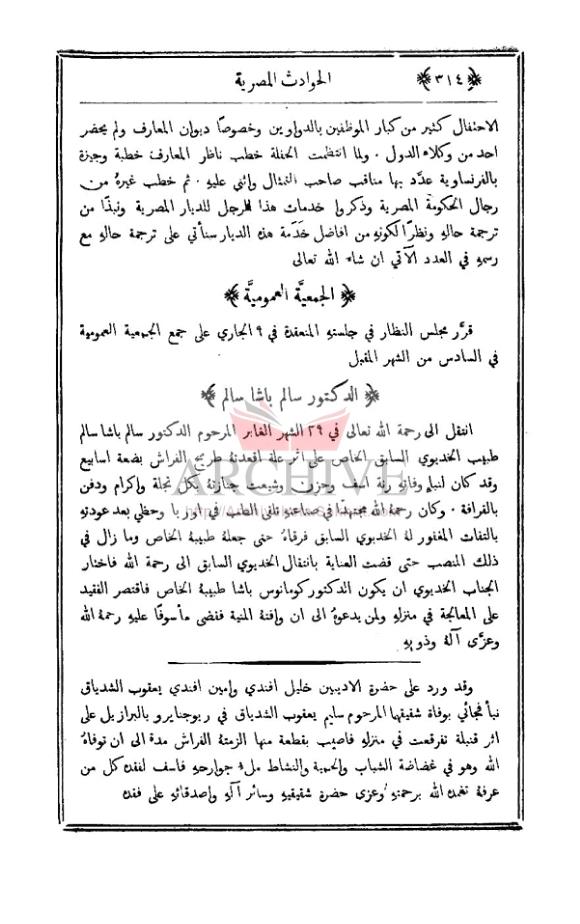 ﴿٣١٤﴾ الحوادث المصرية
الاحتفال كثير من كبار الموظفين بالدواوين وخصوصًا ديوان المعارف ولم يحضر
احد من وكلاء الدول . ولما انتظمت الحفلة خطب ناظر المعارف خطبة وجيزة
بالفرنساوية عدَّد بها مناقب صاحب التمثال واثنى عليهِ . ثم خطب غيرهُ من
رجال الحكومة المصرية وذكروا خدمات هذا الرجل للديار المصرية ونبذًا من
ترجمة حالهِ ونظرًا لكونهِ من افاضل خَدَمة هذه الديار سنأتي على ترجمة حالهِ مع
رسمهِ في العدد الآتي ان شاء الله تعالى
﴿ الجمعيَّة العموميَّة ﴾
قرَّر مجلس النظار في جلستهِ المنعقدة في ٩ الجاري على جمع الجمعية العمومية
في السادس من الشهر المقبل
﴿ الدكتور سالم باشا سالم ﴾
انتقل الى رحمة الله تعالى في ٢٩ الشهر الغابر المرحوم الدكتور سالم باشا سالم
طبيب الخديوي السابق الخاص على اثر علة اقعدتهُ طريح الفراش بضعة اسابيع
وقد كان لنبإِ وفاتهِ رنة اسف وحزن وشيعت جنازتهُ بكل تجلة وإكرام ودفن
بالقرافة . وكان رحمهُ الله مجتهدًا في صناعتهِ تلقى الطب في اوربا وحظي بعد عودتهِ
بالتفات المغفور لهُ الخديوي السابق فرقاهُ حتى جعلهُ طبيبهُ الخاص وما زال في
ذلك المنصب حتى قضت العناية بانتقال الخديوي السابق الى رحمة الله فاختار
الجناب الخديوي ان يكون الدكتور كومانوس باشا طبيبهُ الخاص فاقتصر الفقيد
على المعالجة في منزلهِ ولمن يدعوهُ الى ان وافتهُ المنية فقضى مأسوفًا عليهِ رحمهُ الله
وعزَّى آلهُ وذويهِ
وقد ورد على حضرة الاديبين خليل افندي وامين افندي يعقوب الشدياق
نبأ فجائي بوفاة شقيقهما المرحوم سليم يعقوب الشدياق في ريوجنايرو بالبرازيل على
اثر قنبلة تفرقعت في منزلهِ فاصيب بقطعة منها الزمتهُ الفراش مدة الى ان توفاهُ
الله وهو في غضاضة الشباب والحمية والنشاط ملءَ جوارحهِ فاسف لفقده كل من
عرفهُ تغمدهُ الله برحمتهِ وعزى حضرة شقيقيهِ وسائر آلهِ واصدقائهِ على فقده
ARCHIVE